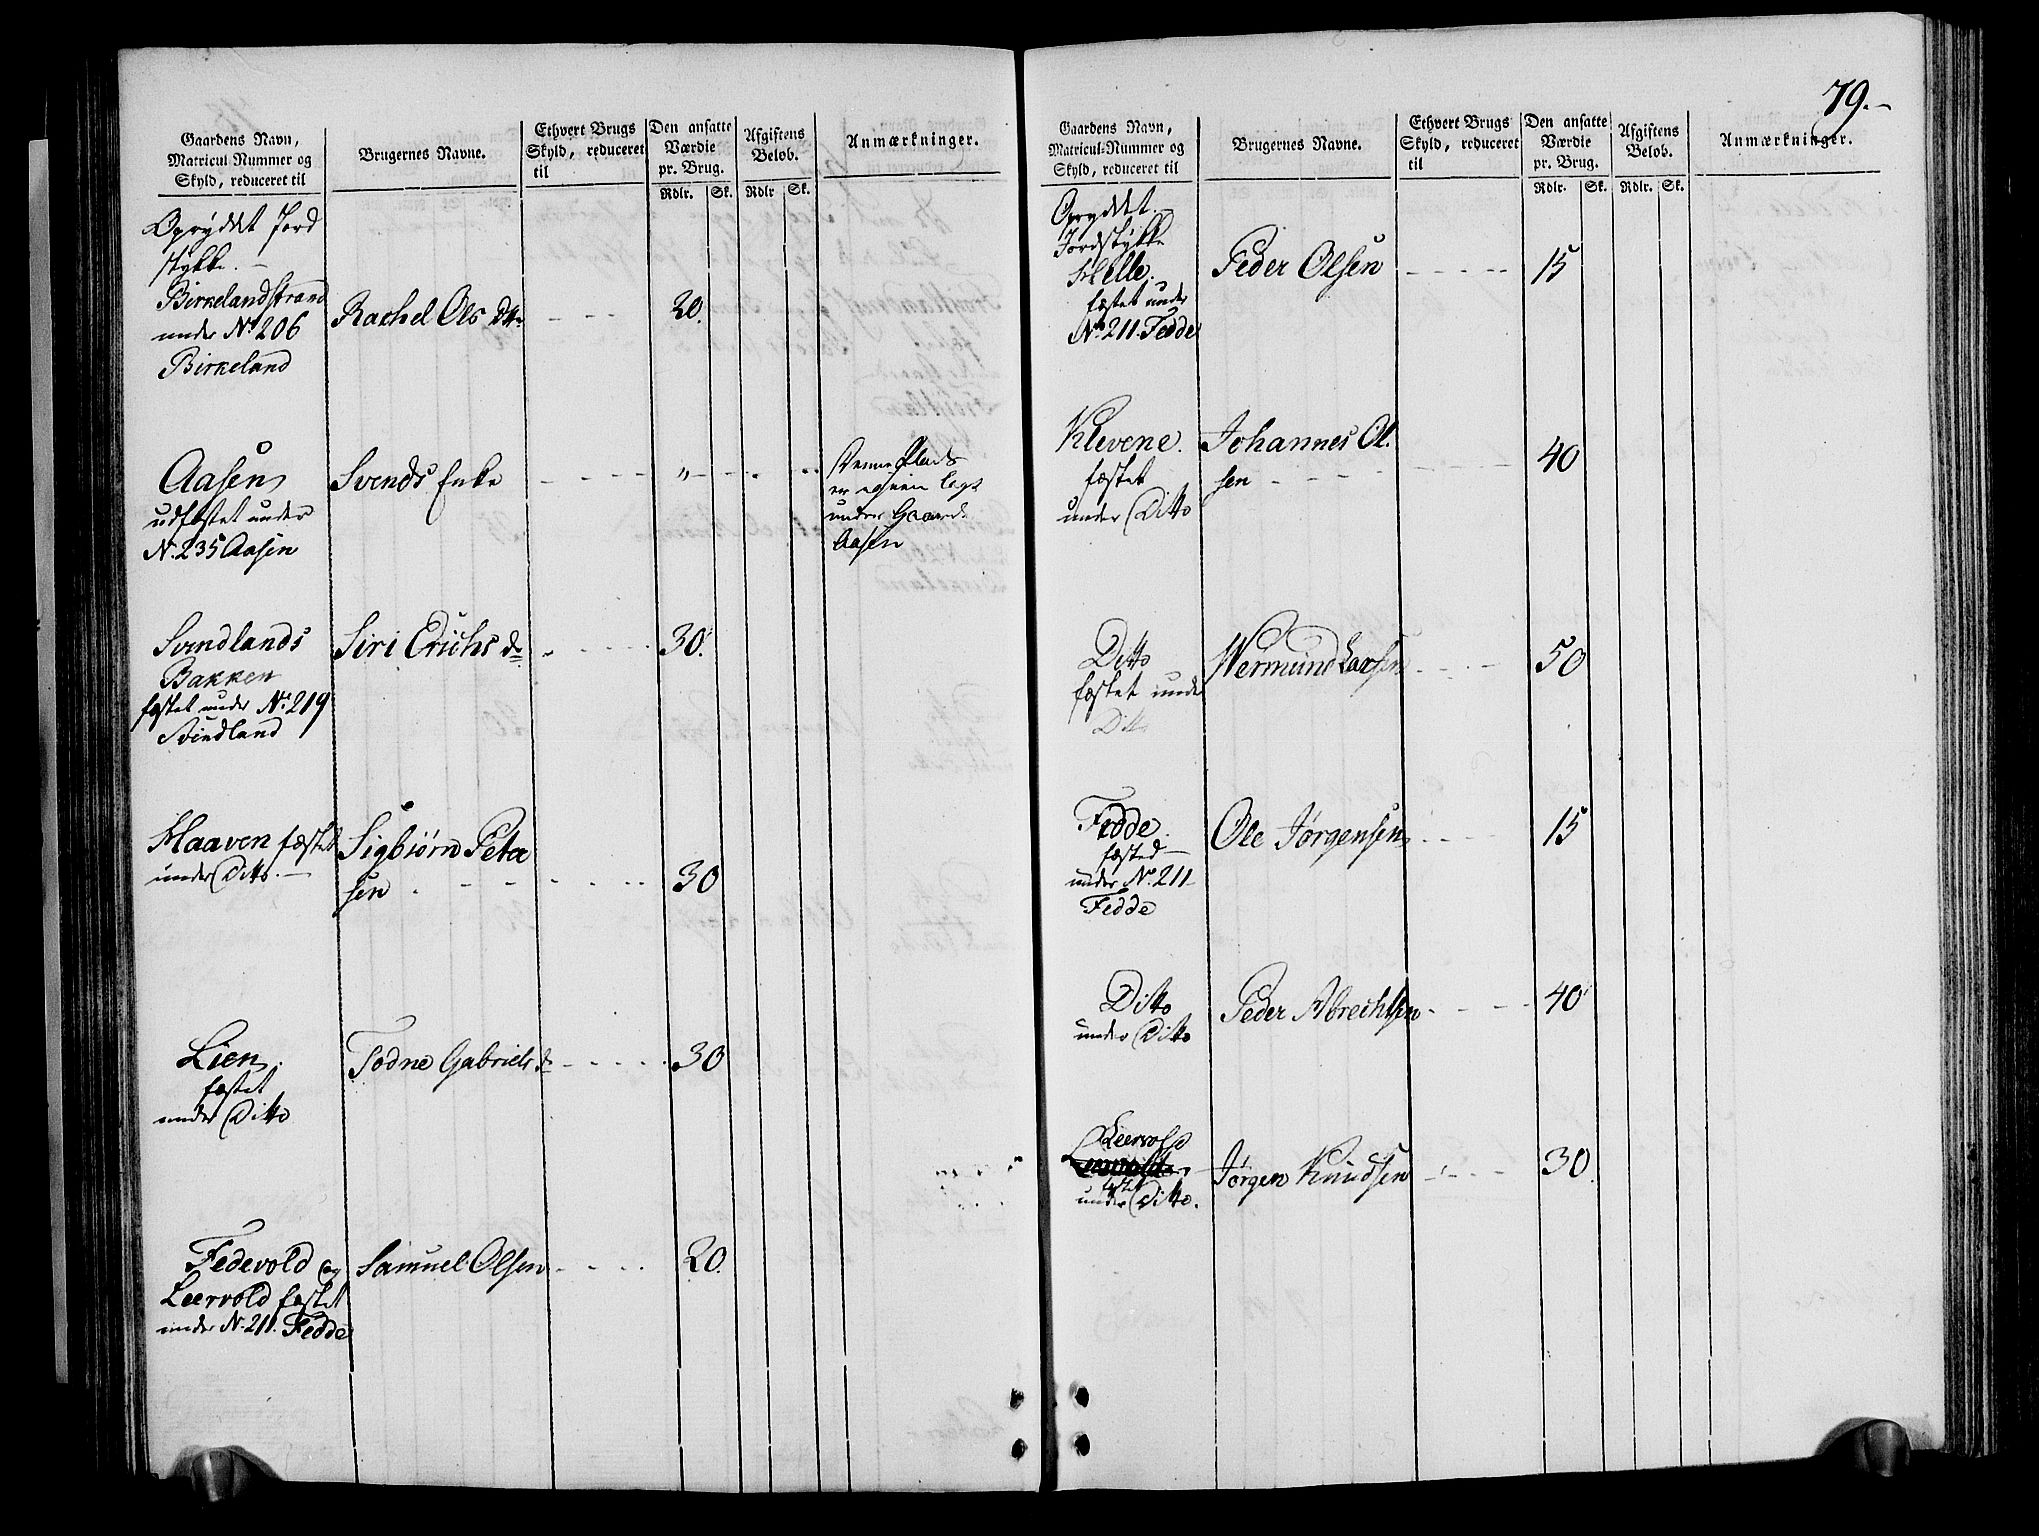 79.-
Gaardens Navn,
Matricul-Nummer og
Skyld, reduceret til
Brugernes Navne.
Ethvert Brugs
Skyld, reduceret
til
Den ansatte
Værdie
pr. Brug.
Rdlr. Sk.
Afgiftens
Beløb.
Rdlr Sk.
Anmærkninger.
Opryddet Jord
stykke. -
Birkelandstrand
under No 206
Birkeland
Rachel Ols
20.
Aasen
udfæstet under
No. 235 Aasen
Svends Enke
"
Denne Plads
er igjen lagt
under Gaard
Aasen
Svindlands
Bakken
fæstet under No. 219
Svindland
Siri Erichs d.
30.
Haaven fæstet
under Ditto. -
Sigbiørn Peter
sen
30
Lien.
fæstet
under Ditto
Todne Gabriels d.
30
Fedevold og
Leervold fæstet
under No. 211. Fedde
Samuel Olsen
20.
Gaardens Navn,
Matricul-Nummer og
Skyld, reduceret til
Brugernes Navne.
Ethvert Brugs
Skyld, reduceret
til
Den ansatte
Værdie
pr. Brug.
Rdlr. Sk.
Afgiftens
Beløb.
Rdlr. Sk.
Anmærkninger.
Opryddet
Jordstykke
Helle.
fæstet under
No. 211. Fedde
Peder Olsen
15
Klevene.
fæstet
under Ditto
Johannes Ol.
sen
40
Ditto
fæstet under
Ditto
Wermund Larsen
50
Fedde.
fæsted
under No. 211
Fedde
Ole Jørgensen
15
Ditto
under Ditto
Peder Abrechtsen
40
Leervold
under Ditto.
Jørgen Knudsen
30.